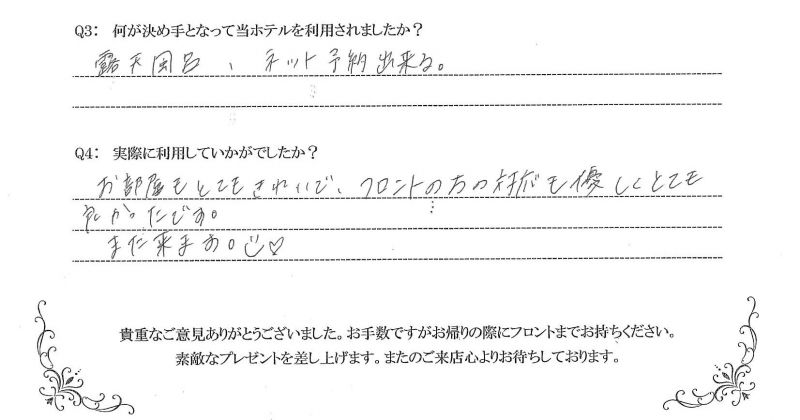 Q3： 何が決め手となって当ホテルを利用されましたか？
露天風呂、ネット予約出来る。
Q4： 実際に利用していかがでしたか？
お部屋もとてもきれいで、フロントの方の対応も優しくとても
良かったです。
また来ます。
貴重なご意見ありがとうございました。お手数ですがお帰りの際にフロントまでお持ちください。
素敵なプレゼントを差し上げます。またのご来店心よりお待ちしております。